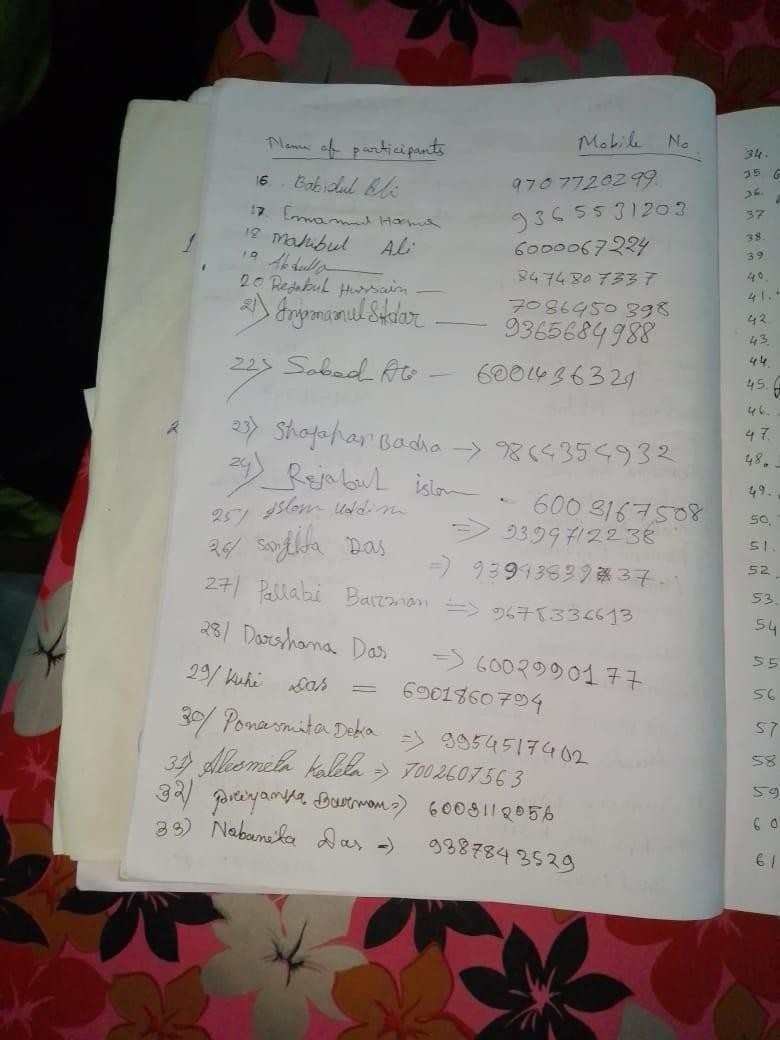 Name of participants Mobile No.
16. Babidul Ali 9707720299
17. Emamul Hoque 9365531203
18 Mahibul Ali 6000067224
19 Abdulla 8474807337
20 Rejabul Hussain — 7086450398
21) Injamamul Sikdar — 9365684988
22) Sabed Ali — 6001436321
23) Shajahan Badsa → 9864354932
24) Rejabul islom - 6003167508
25) Islom Uddin => 9399712238
26/ Sanghita Das => 93943839 37
27/ Pallabi Barman => 9678336613
28/ Darshana Das => 6002990177
29/ Kuhi Das = 6901860794
30/ Ponasmita Deka => 9954517402
31) Kalita => 7002607563
32) Priyanka Barman => 6003112056
33) Nabanita Das => 9387843529
34.
35
36.
37
38.
39.
40.
41.
42
43.
44.
45.
46.
47.
48.
49.
50.
51.
52.
53.
54
55
56
57
58
59
60
61